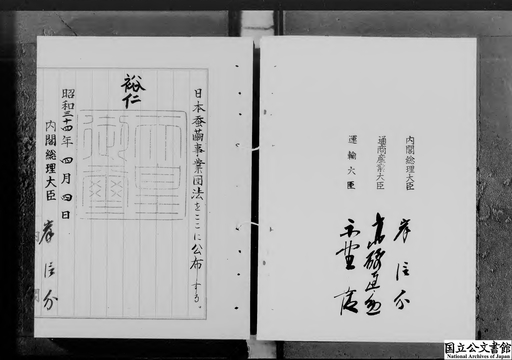 内閣総理大臣 岸信介
通商産業大臣
運輸大臣
日本蚕繭事業団法をここに公布する。
裕仁
天皇
御璽
昭和三十四年四月四日
内閣総理大臣 岸信介
国立公文書館
National Archives of Japan